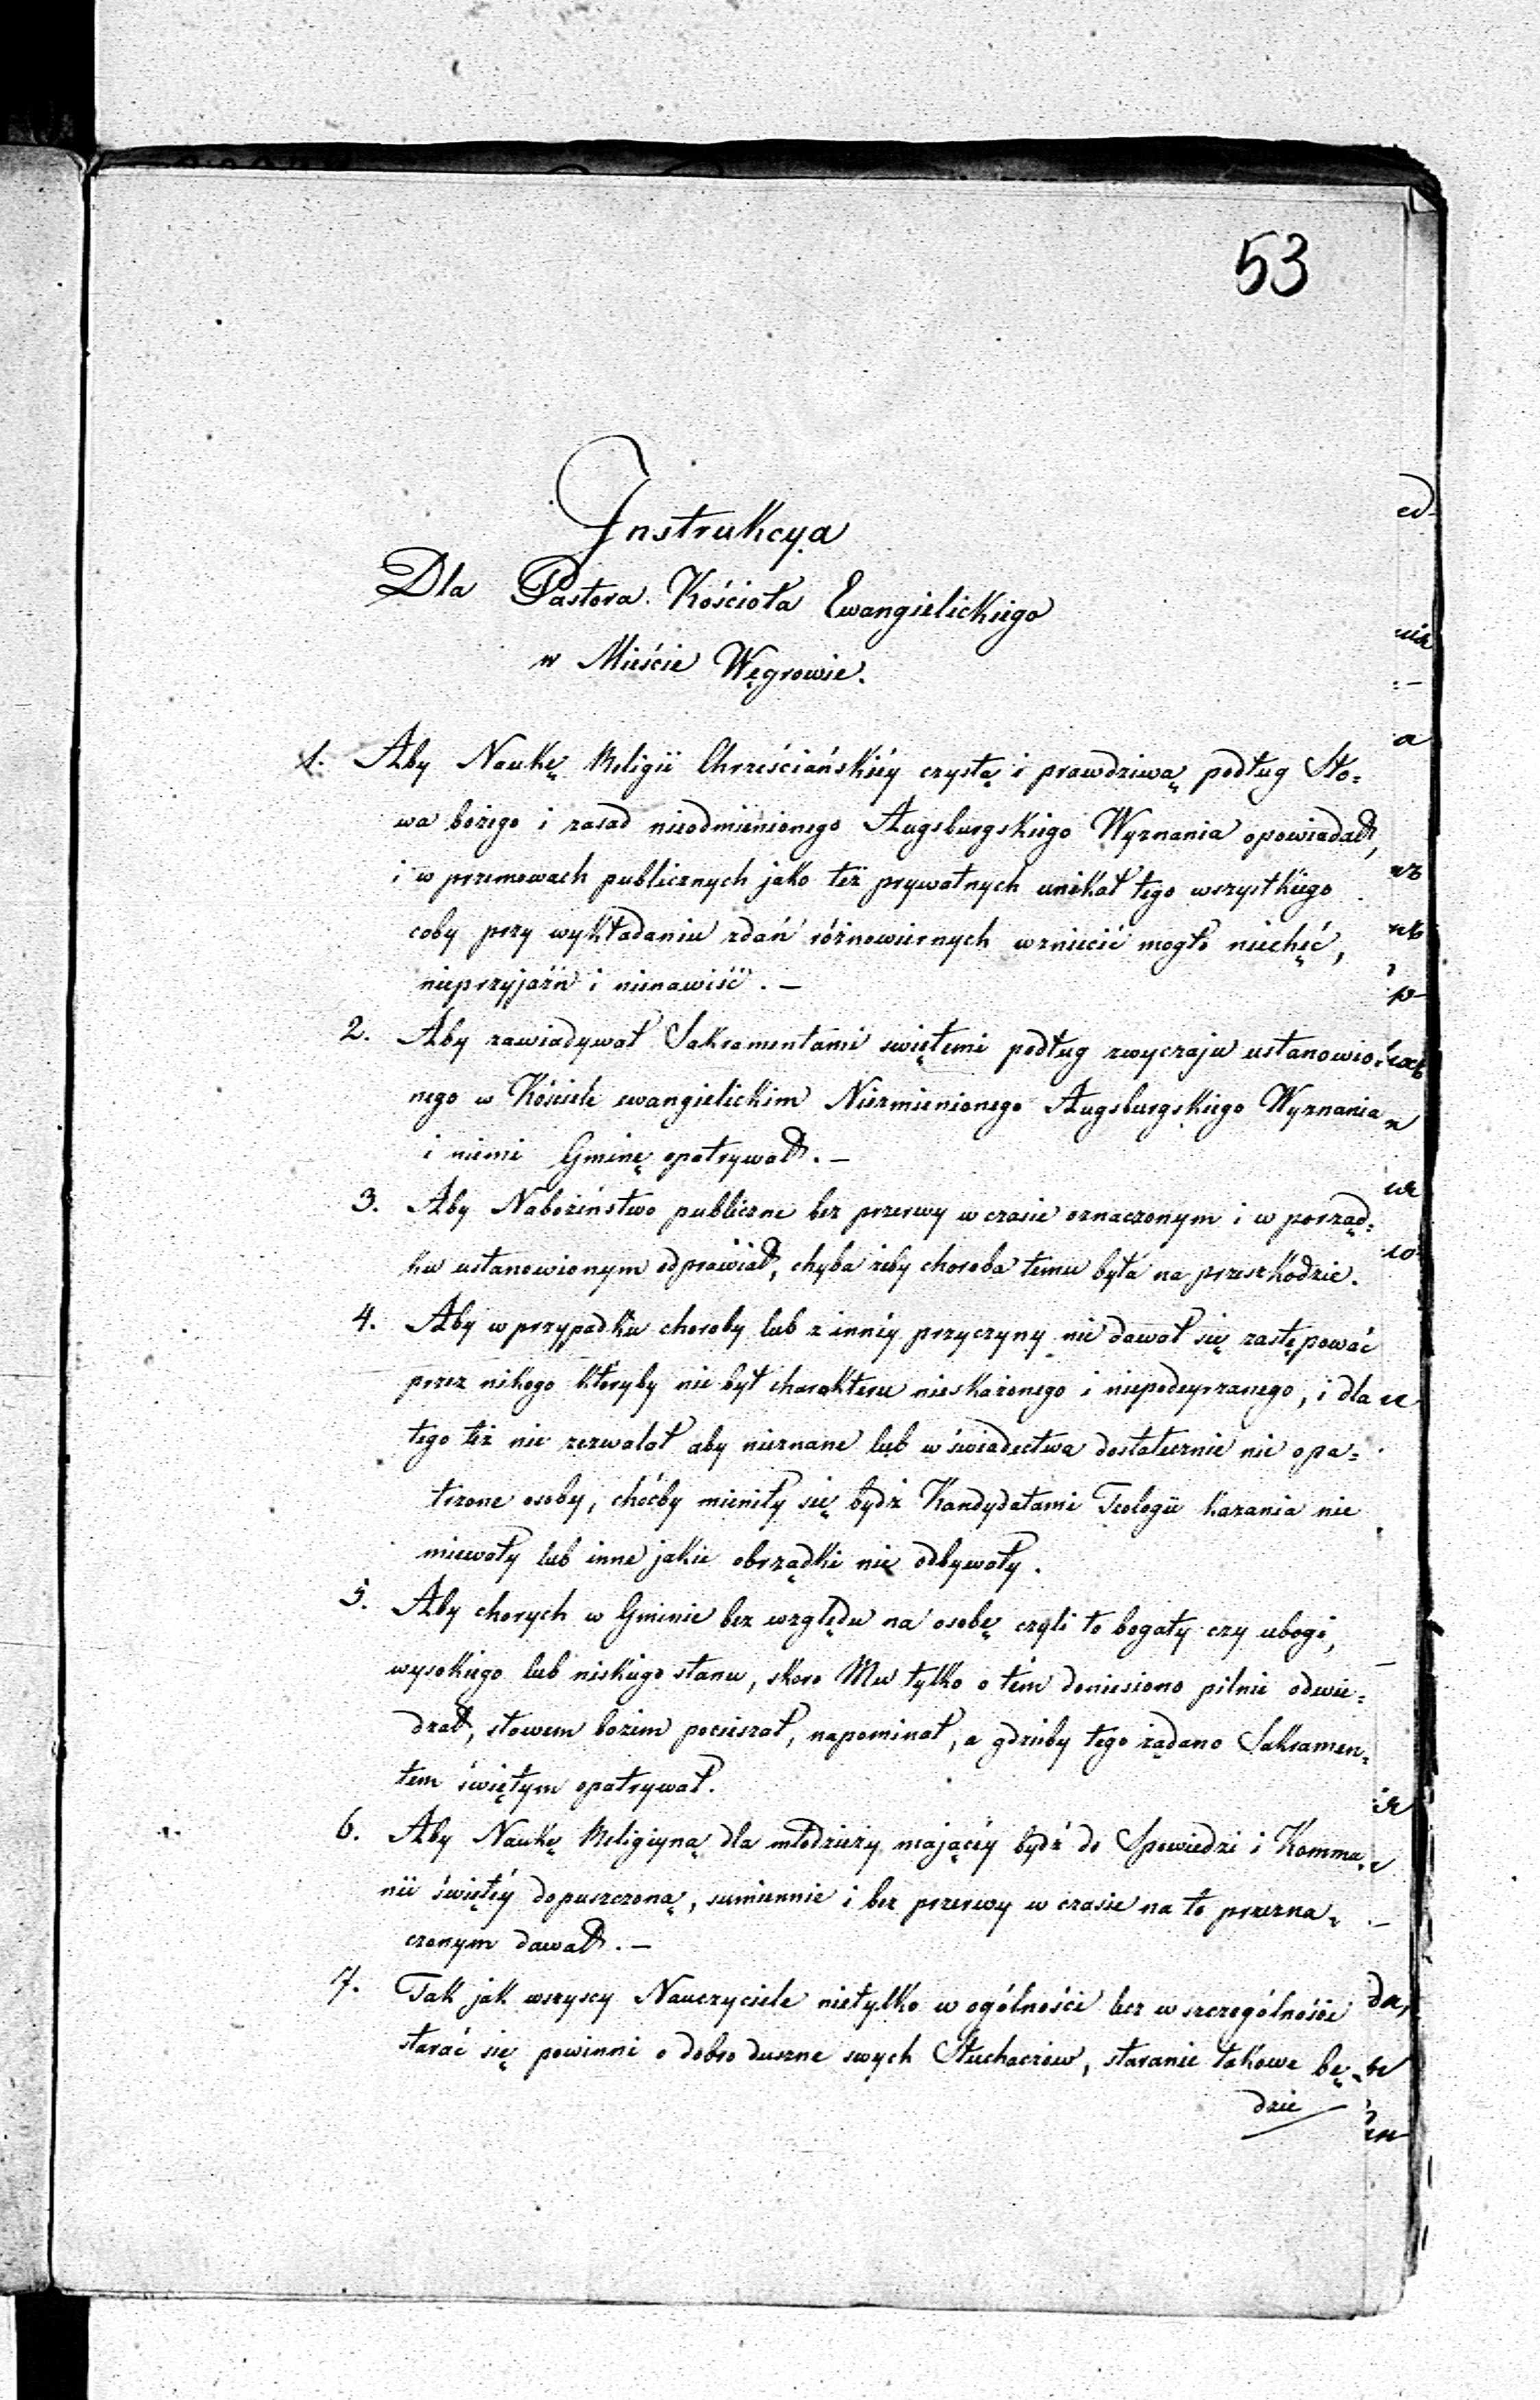 53
Instrukcya
Dla Pastora Kościoła Ewangielickiego
w Mieście Węgrowie.
1. Aby Naukę Religii Chrześciańskiéy czystą i prawdziwą podług Sło=
wa bożego i zasad nieodmienionego Augsburgskiego Wyznania opowiadał,
i w przemowach publicznych jako też prywatnych unikał tego wszystkiego
coby przy wykładaniu zdań różnowiernych wzniecić mogło niechęć,
nieprzyjaźń i nienawiść. —
2. Aby zawiadywał Sakramentami swiętemi podług zwyczaju ustanowio=
nego w Kościele ewangielickim Niezmienionego Augsburgskiego Wyznania
i niemi Gminę opatrywał. —
3. Aby Nabożeństwo publiczne bez przerwy w czasie oznaczonym i w porząd=
ku ustanowionym odprawiał, chyba żeby choroba temu była na przeszkodzie.
4. Aby w przypadku choroby lub z innéy przyczyny nie dawał się zastępować
przez nikogo któryby nie był charakteru nieskażonego i niepodeyrzanego, i dla
tego też nie zezwalał aby nieznane lub w świadectwa dostatecznie nie opa=
trzone osoby, choćby mieniły się bydź Kandydatami Teologii kazania nie
miewały lub inne jakie obrządki nie odbywały.
5. Aby chorych w Gminie bez względu na osobę czyli to bogaty czy ubogi,
wysokiego lub niskiego stanu, skoro Mu tylko o tém doniesiono pilnie odwie=
dzał, słowem bożem pocieszał, napominał, a gdzieby tego żądano Sakramen=
tem świętym opatrywał.
6. Aby Naukę Religiyną dla młodzieży mającéy bydź do Spowiedzi i Kommu=
nii świętéy dopuszczoną, sumiennie i bez przerwy w czasie na to przezna=
czonym dawał. —
7. Tak jak wszyscy Nauczyciele nietylko w ogólności lecz w szczególności
starać się powinni o dobro duszne swych Słuchaczów, staranie takowe bę=
dzie